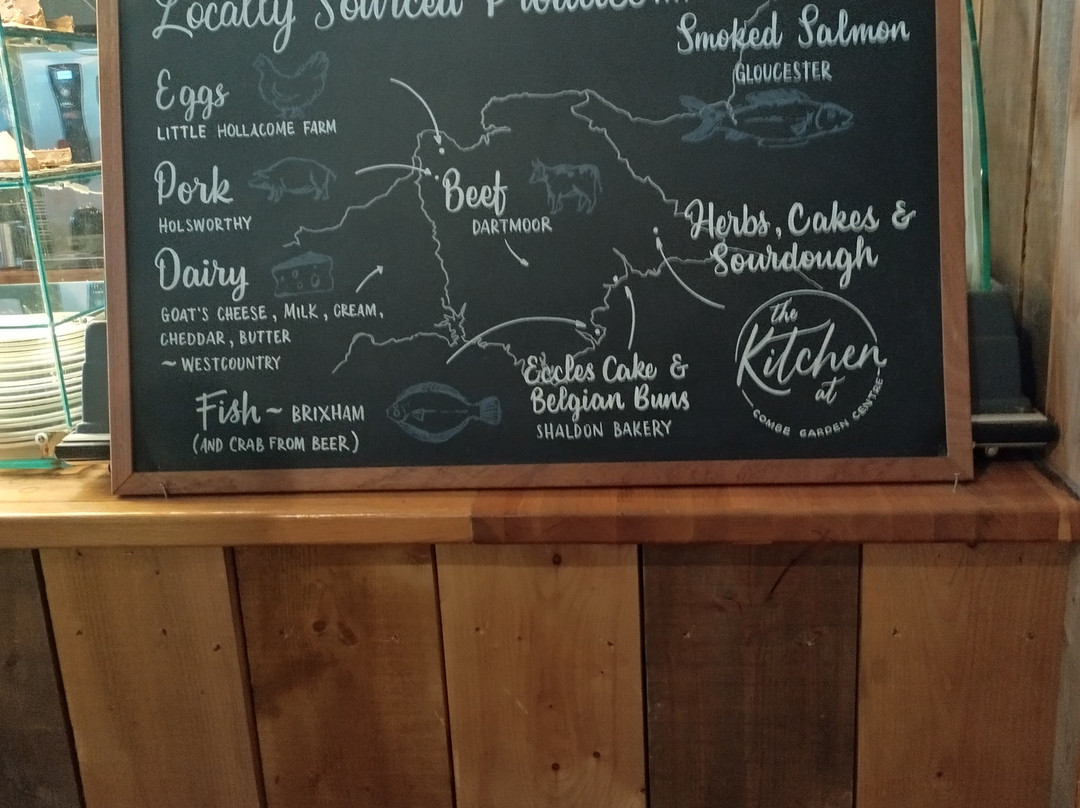 Locally Sourced Produce...
Smoked Salmon
GLOUCESTER
Eggs
LITTLE HOLLACOME FARM
Pork
HOLSWORTHY
Beef
DARTMOOR
Herbs, Cakes &
Sourdough
the
Kitchen
at
COMBE GARDEN CENTRE
Dairy
GOAT'S CHEESE, MILK, CREAM,
CHEDDAR, BUTTER
~ WESTCOUNTRY
Fish ~ BRIXHAM
(AND CRAB FROM BEER)
Eccles Cake &
Belgian Buns
SHALDON BAKERY